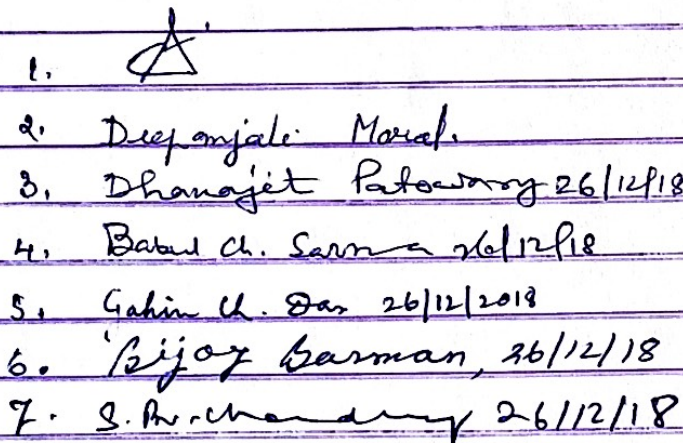 1.
2. Deepanjali Moral.
3. Dhanajit Patowary 26/12/18
4. Babul Ch. Sarma 26/12/18
5. Gahin Ch. Das 26/12/2018
6. Bijoy Barman, 26/12/18
7. S. 26/12/18